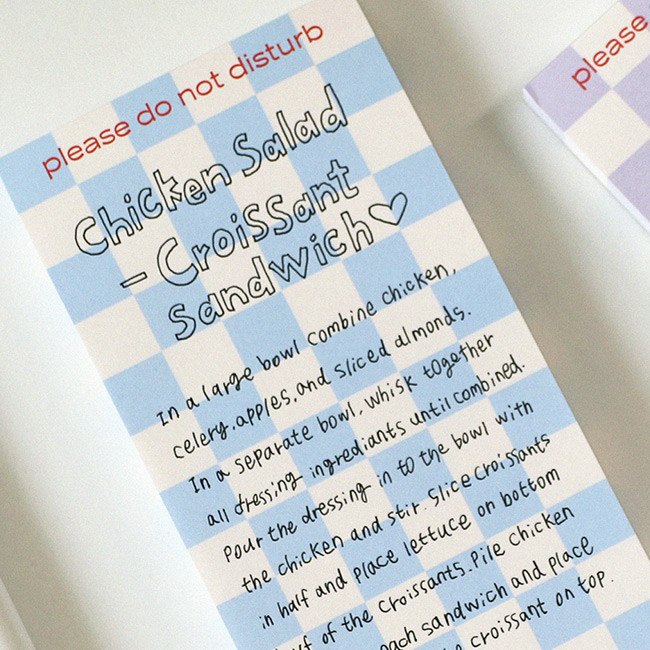 please do not disturb
please
Chicken Salad
- Croissant
Sandwich♡
In a large bowl combine chicken,
celery, apples, and sliced almonds.
In a separate bowl, whisk together
all dressing ingrediants until combined.
Pour the dressing in to the bowl with
the chicken and stir. Slice croissants
in half and place lettuce on bottom
of the croissants. Pile chicken
sandwich and place
croissant on top.